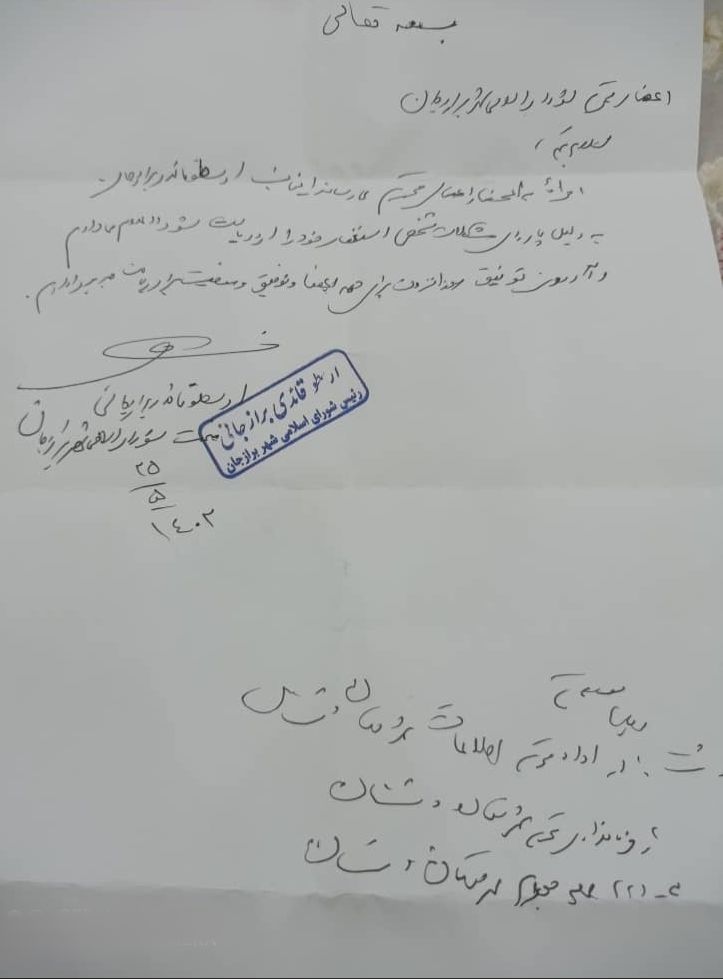 بسمه تعالی
اعضا محترم شورای اسلامی شهر برازجان
سلام علیکم ،
احتراما به استحضار اعضای محترم می رساند اینجانب ارسطو قائدی برازجانی
به دلیل پاره‌ای مشکلات شخصی استعفای خود را از ریاست شورا اعلام می دارم
و آرزوی توفیق روز افزون برای همه اعضا و توفیق و موفقیت
ارسطو قائدی برازجانی
ریاست شورای اسلامی شهر برازجان
۲۵
۵
۱۴۰۲
ارسطو قائدی برازجانی
رئیس شورای اسلامی شهر برازجان
رونوشت
۱- اداره محترم اطلاعات شهرستان دشتستان
۲- فرمانداری محترم شهرستان دشتستان
شهرستان دشتستان